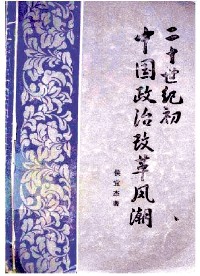 二十世纪初
中国政治改革风潮
侯宜杰著